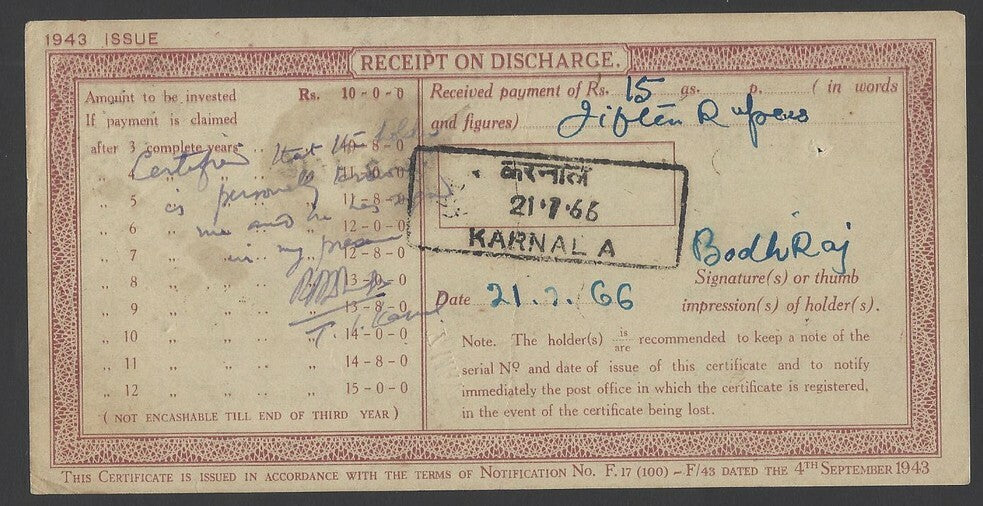 1943 ISSUE
RECEIPT ON DISCHARGE.
Amount to be invested Rs. 10-0-0
If payment is claimed
after 3 complete years 10-8-0
" 4 " " .. " 11-0-0
" 5 " " .. " 11-8-0
" 6 " " .. " 12-0-0
" 7 " " .. " 12-8-0
" 8 " " .. " 13-0-0
" 9 " " .. " 13-8-0
" 10 " " .. " 14-0-0
" 11 " " .. " 14-8-0
" 12 " " .. " 15-0-0
(NOT ENCASHABLE TILL END OF THIRD YEAR)
Certified that the holder
is personally known
me and he has signed
in my presence
Received payment of Rs. 15 as. p. (in words
and figures) Fifteen Rupees
करनाल
21·7·66
KARNAL A
BodhRaj
Signature(s) or thumb
impression(s) of holder(s).
Date 21.7.66
Note. The holder(s) is/are recommended to keep a note of the
serial Nº and date of issue of this certificate and to notify
immediately the post office in which the certificate is registered,
in the event of the certificate being lost.
THIS CERTIFICATE IS ISSUED IN ACCORDANCE WITH THE TERMS OF NOTIFICATION NO. F.17 (100) – F/43 DATED THE 4TH SEPTEMBER 1943